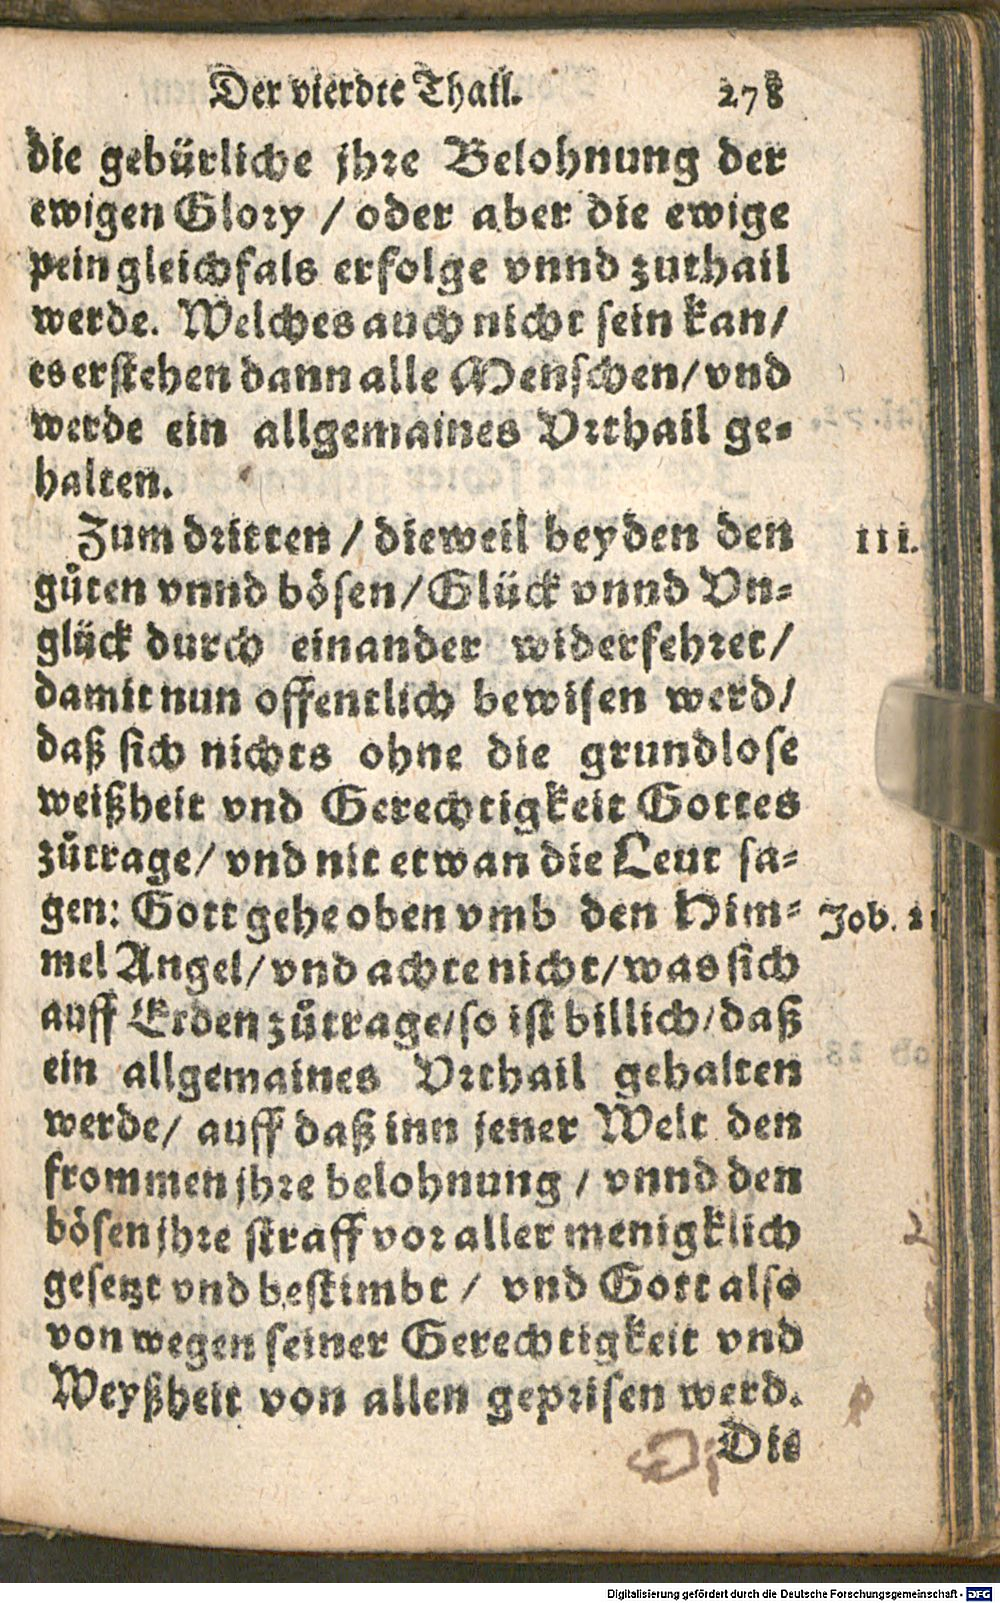 Der vierdte Thail. 278
die gebürliche jhre Belohnung der
ewigen Glory / oder aber die ewige
pein gleichfals erfolge vnnd zuthail
werde. Welches auch nicht sein kan/
es erstehen dann alle Menschen/ vnd
werde ein allgemaines Vrthail ge-
halten.
Zum dritten / dieweil beyden den III.
gůten vnnd bösen/ Glück vnnd Vn-
glück durch einander widerfehret/
damit nun offentlich bewisen werd/
daß sich nichts ohne die grundlose
weißheit vnd Gerechtigkeit Gottes
zůtrage/ vnd nit etwan die Leut sa-
gen: Gott gehe oben vmb den Him- Job. 2
mel Angel/ vnd achte nicht/ was sich
auff Erden zůtrage/ so ist billich/ daß
ein allgemaines Vrthail gehalten
werde/ auff daß inn jener Welt den
frommen jhre belohnung / vnnd den
bösen jhre straff vor aller menigklich
gesetzt vnd bestimbt / vnd Gott also
von wegen seiner Gerechtigkeit vnd
Weyßheit von allen geprisen werd.
Die
Digitalisierung gefördert durch die Deutsche Forschungsgemeinschaft - DFG